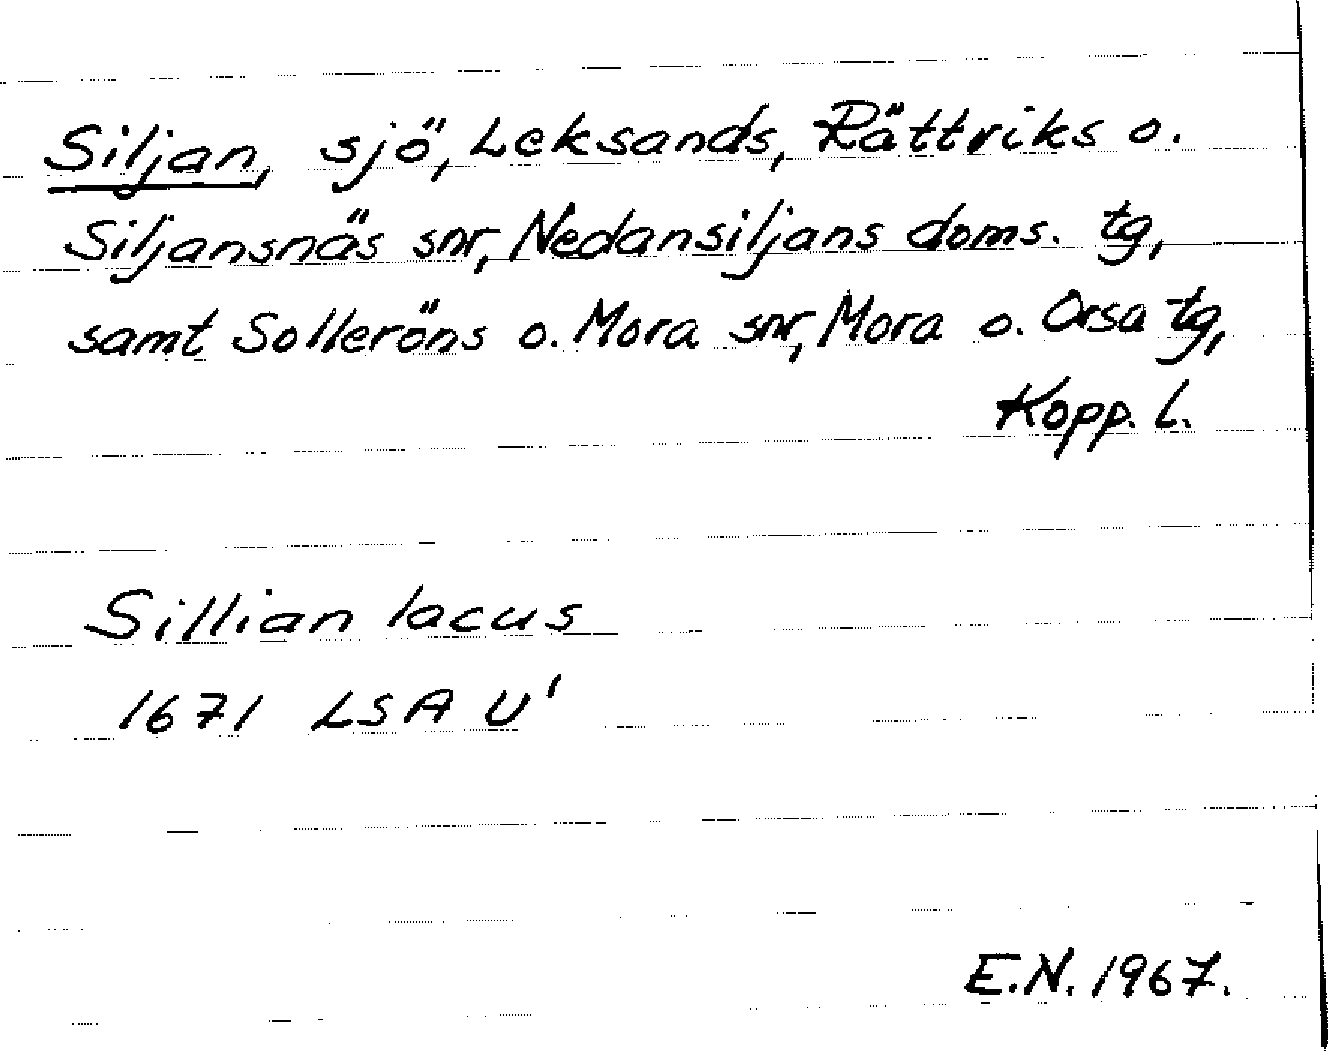 Siljan, sjö, Leksands, Rättviks o.
Siljansnäs snr, Nedansiljans doms. tg,
samt Solleröns o. Mora snr, Mora o. Orsa tg,
Kopp. l.
Sillian lacus
1671 LSA U¹
E.N. 1967.